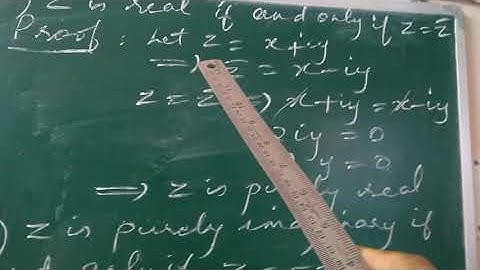 ) z is real if and only if z = z̄
Proof : Let z = x+iy
⟹ z̄ = x-iy
z = z̄ ⟹ x+iy = x-iy
iy = 0
y = 0
⟹ z is purely real
) z is purely imaginary if
only if z =